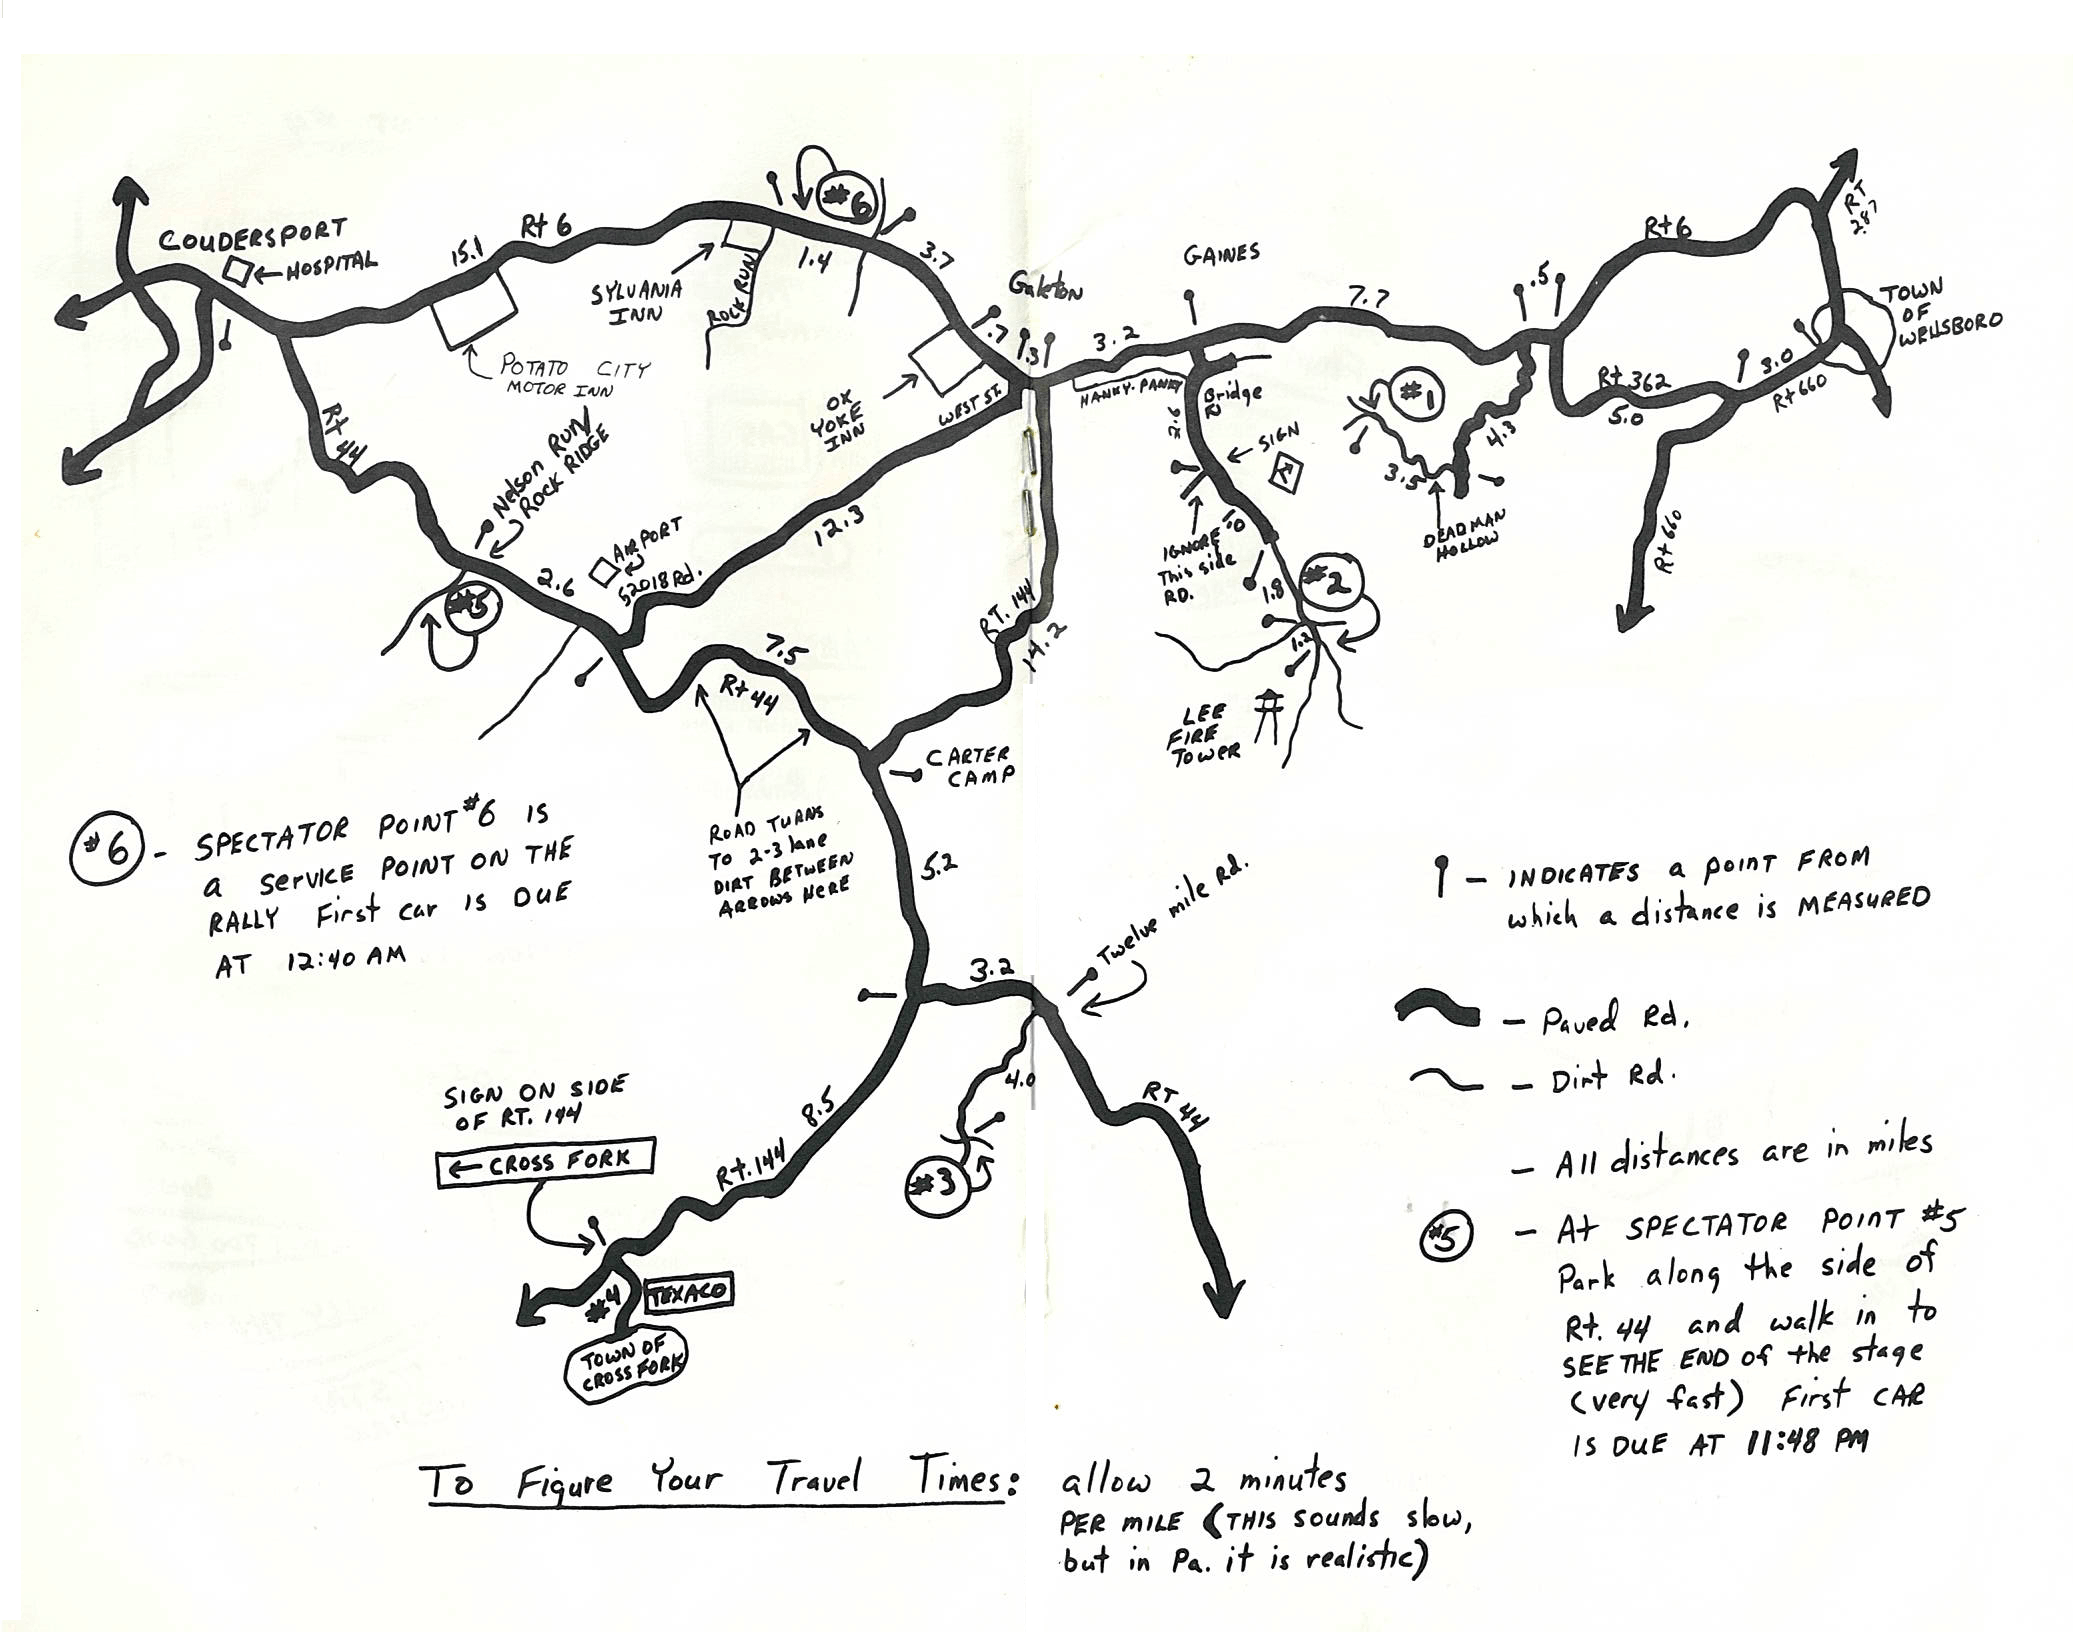 COUDERSPORT
HOSPITAL
15.1
Rt 6
POTATO CITY
MOTOR INN
SYLVANIA
INN
ROCK RUN
1.4
#6
3.7
Galeton
.7
.3
OX
YOKE
INN
WEST St.
3.2
HANKY-PANKY
GAINES
7.7
.5
Rt 6
RT
287
TOWN
OF
WELLSBORO
3.0
Rt 660
Rt 362
5.0
Rt 660
#1
4.3
3.5
DEADMAN
HOLLOW
Bridge
2.6
SIGN
IGNORE
This side
RD.
1.0
1.8
#2
1.2
LEE
FIRE
TOWER
Rt 44
Nelson Run/
ROCK RIDGE
#5
2.6
AIRPORT
52018 Rd.
12.3
7.5
Rt 44
RT. 144
14.2
CARTER
CAMP
ROAD TURNS
TO 2-3 lane
DIRT BETWEEN
ARROWS HERE
5.2
3.2
Twelve mile Rd.
4.0
#3
RT 44
8.5
Rt. 144
SIGN ON SIDE
OF RT. 144
CROSS FORK
#4
TEXACO
TOWN OF
CROSS FORK
#6 - SPECTATOR POINT #6 IS
a SERVICE POINT ON THE
RALLY First car IS DUE
AT 12:40 AM
- INDICATES a point FROM
which a distance is MEASURED
- Paved Rd.
- Dirt Rd.
- All distances are in miles
#5 - At SPECTATOR POINT #5
Park along the side of
Rt. 44 and walk in to
SEE THE END of the stage
(very fast) First CAR
IS DUE AT 11:48 PM
To Figure Your Travel Times: allow 2 minutes
PER MILE (THIS sounds slow,
but in Pa. it is realistic)